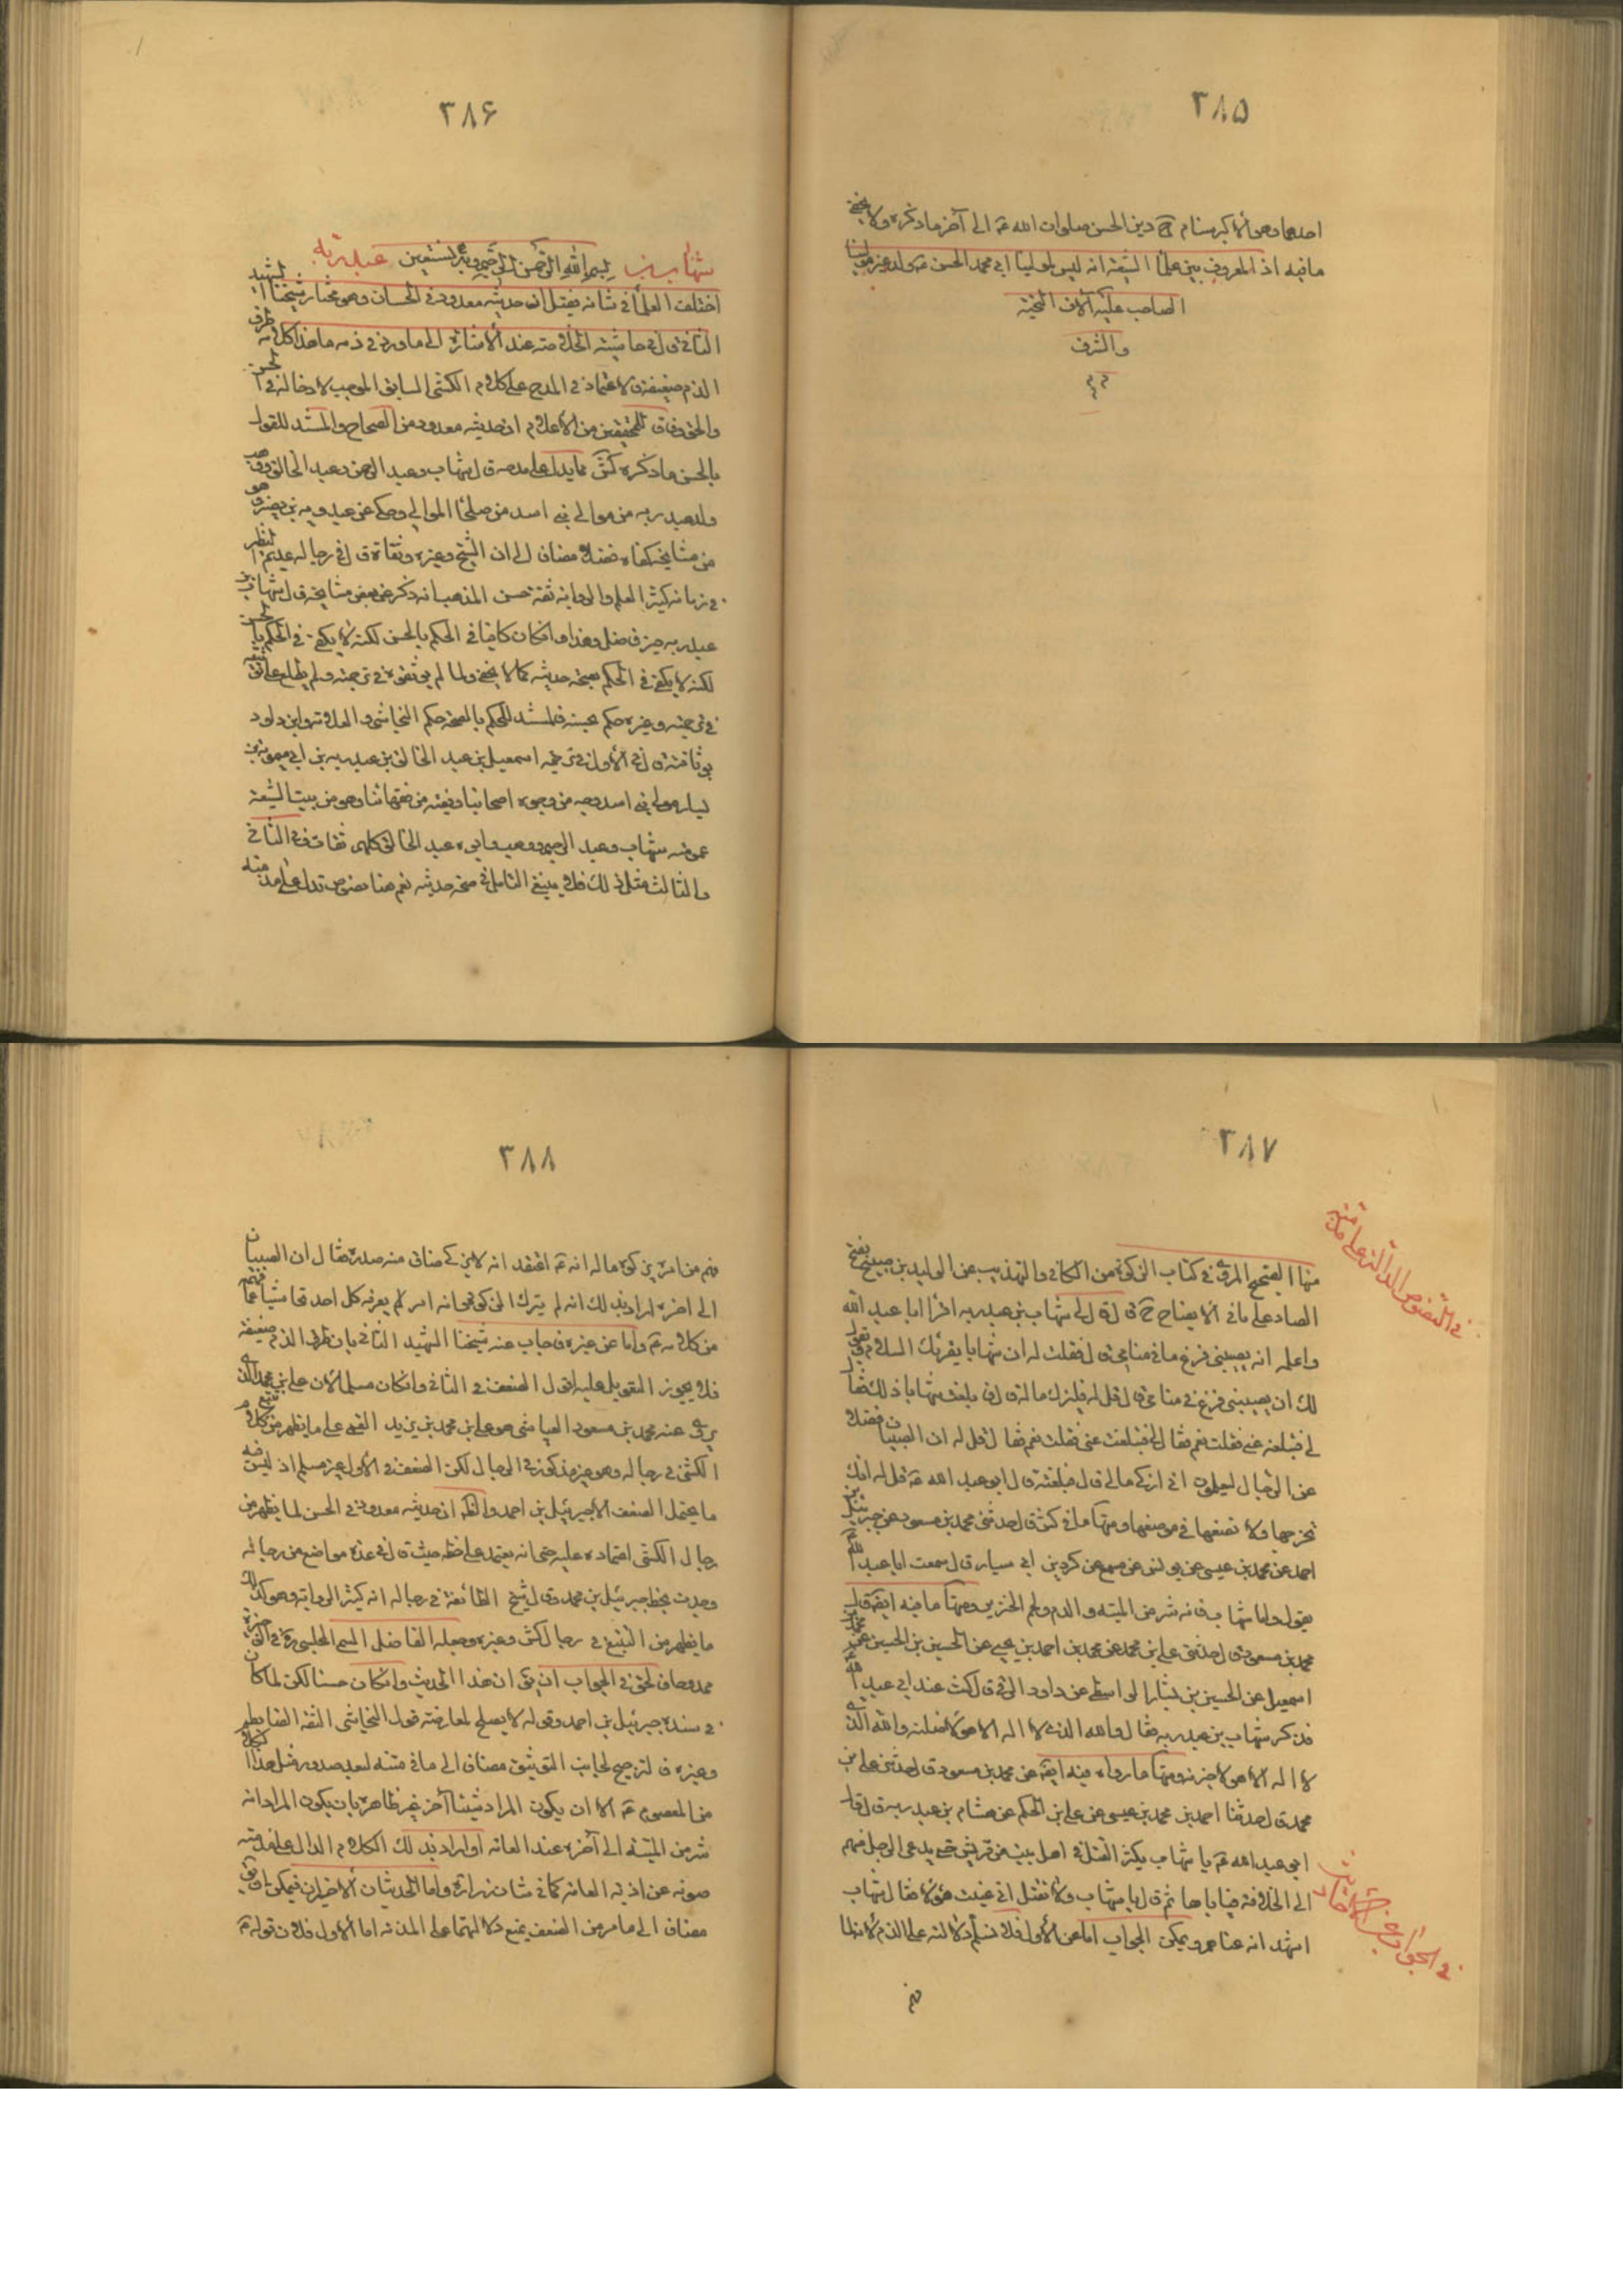 ٣٨۵
احدهما وهو الأكبر سنام
دين الحسن صلوات الله ع الى آخر ما ذكره ولا يخفى
ما فيه اذ المعروف بين علمأ الشيعة انه ليس لمولينا ابي محمد الحسن ع ولد غير مولينا
الصاحب عليه آلاف التحية
والشرف
٣٨۶
شهاب بن بسم الله الرحمن الرحيم وبه نستعين عبد ربه
اختلفت العلمأ في شانه فقيل ان حديثه معدود في الحسان وهو مختار شيخنا الشهيد
الثاني ق ل في حاشية الخلاصة عند الأشارة الى ما ورد في ذمه ما هذا كلامه طرق
الذم ضعيفة والاعتماد في المدح على كلام الكشي السابق الموجب لادخاله في الحسن
والحق وفاقا للمحققين من الأعلام ان حديثه معدود من الصحاح والمستند للقول
بالحسن ما ذكره كش مما يدل على مدحه ق ل شهاب وعبد الرحمن وعبد الخالق ووهب
ولد عبد ربه من موالي بني اسد من صلحأ الموالي وحكى عن حمدويه بن نصير وهو
من مشايخه كفاه فضلا مضافا الى ان الشيخ وغيره وثقاه ق ل في رجاله عديم النظير
في زمانه كثير العلم والرواية ثقة حسن المذهب انه ذكر عن بعض مشايخه ق ل شهاب بن
عبد ربه خير فاضل وهذا وان كان كافيا في الحكم بالحسن لكنه لا يكفي في الحكم بالحسن
لكنه لا يكفي في الحكم بصحة حديثه كما لا يخفى ولما لم يوثقوه في ترجمته ولم يطلع على توثيقه
في ترجمة غيره حكم بحسنه فلمستند للحكم بالصحة حكم النجاشي والعلامة وابن داود
بوثاقته ق ل في الأول في ترجمة اسمعيل بن عبد الخالق بن عبد ربه بن ابي ميمونة بن
يسار مولى بني اسد وجه من وجوه اصحابنا وفقيه من فقهائنا وهو من بيت الشيعة
عمومته شهاب وعبد الرحيم ووهب وابوه عبد الخالق كلهم ثقات وفي الثاني
والثالث مثل ذلك فلا ينبغي التامل في صحة حديثه نعم هنا نصوص تدل على مذمته
٣٨٧
في النصوص الدالة على مذمته
منها الصحيح المروي في كتاب الزكوة من الكافي والتهذيب عن الوليد بن صبيح بفتح
الصاد على ما في الايضاح ق ل ق ل لي شهاب بن عبد ربه اقرأ ابا عبد الله
واعلمه انه يصيبني فزع في منامي ق ل فقلت له ان شهابا يقرئك السلام ويقول
لك ان يصيبني فزع في منامي ق ل قل له فليزك ماله ق ل فابلغت شهابا ذلك فقال
لي فتبلغه عني فقلت نعم فقال لي فتبلغه عني فقلت نعم فقال قل له ان الصبيان فضلا
عن الرجال ليعلمون اني ازكي مالي ق ل فابلغته ق ل ابو عبد الله ع قل له انك
تخرجها ولا تضعها في موضعها ومنها ما في كش ق ل حدثني محمد بن مسعود عن جبرئيل بن
احمد عن محمد بن عيسى عن يونس عن مسمع كردين ابي سيار ق ل سمعت ابا عبد الله ع
يقول واما شهاب فانه شر من الميتة والدم ولحم الخنزير ومنها ما فيه ايضا ق ل
محمد بن مسعود ق ل حدثني علي بن محمد عن محمد بن احمد بن يحيى عن الحسين بن الحسين عن محمد بن
اسمعيل عن الحسين بن بشار الواسطي عن داود الرقي ق ل كنت عند ابي عبد الله ع
فذكر شهاب بن عبد ربه فقال والله الذي لا اله الا هو لاضلنه والله الذي
لا اله الا هو لاخبرنه ومنها ما رواه فيه ايضا عن محمد بن مسعود ق ل حدثني علي بن
محمد ق ل حدثنا احمد بن محمد بن عيسى عن علي بن الحكم عن هشام بن عبد ربه ق ل قال
ابي عبد الله ع يا شهاب يكثر القتل في اهل بيت من قريش حتى يدعى الرجل منهم
الى الخلافة فيأباها ثم ق ل يا شهاب ولا تقتل اني عنيت هؤلاء فقال شهاب
اشهد انه عناهم ويمكن الجواب اما عن الأول فلا نسلم دلالته على الذم لانا
فى الجواب عن الأخبار
٣٨٨
فهم من امره بزكوة ماله انه ع اعتقد انه لا يزكي ضاق منه صدره فقال ان الصبيان
الى اخره اراد بذلك انه لم يترك الزكوة وانه امر يعرفه كل احد تحاشيا مما فهم
من كلامه ع واما عن غيره فاجاب عنه شيخنا الشهيد الثاني بان طرق الذم ضعيفة
فلا يجوز التعويل عليه اقول الضعف في الثاني وان كان مسلما لأن علي بن محمد الذي
يروي عنه محمد بن مسعود العياشي هو علي بن محمد بن يزيد القمي على ما يظهر من تتبع كلام
الكشي في رجاله وهو غير مذكور في الرجال لكن الضعف في الأول غير مسلم اذ ليس فيه
ما يحتمل الضعف الا جبرئيل بن احمد والظ ان حديثه معدود في الحسن لما يظهر من
رجال الكشي اعتماده عليه حتى انه يعتمد على خطه حيث ق ل في عدة مواضع من رجاله
وجدت بخط جبرئيل بن محمد وق ل شيخ الطائفة في رجاله انه كثير الرواية وهو كذلك
ما يظهر من التتبع في رجال كش وغيره وجعله الفاضل السمي المجلسي ره في الوجيزة
ممدوحا فالحق في الجواب ان يق ان هذا الحديث وان كان حسنا لكن لما كان
في سنده جبرئيل بن احمد وقوله لا يصلح لمعارضة قول النجاشي الثقة الضابط
وغيره فالترجيح لجانب التوثيق مضافا الى ما في متنه لبعد صدور مثل هذا الكلام
من المعصوم ع الا ان يكون المراد شيئا آخر غير ظاهره بان يكون المراد انه
شر من الميتة الى آخره عند العامة او اراد بذلك الكلام الدال على مذمته
صونه عن اذية العامة كما في شان زرارة واما الحديثان الأخيران فيمكن ان يق
مضافا الى ما مر من الضعف يمنع دلالتهما على المذمة اما الأول فلان قوله ع